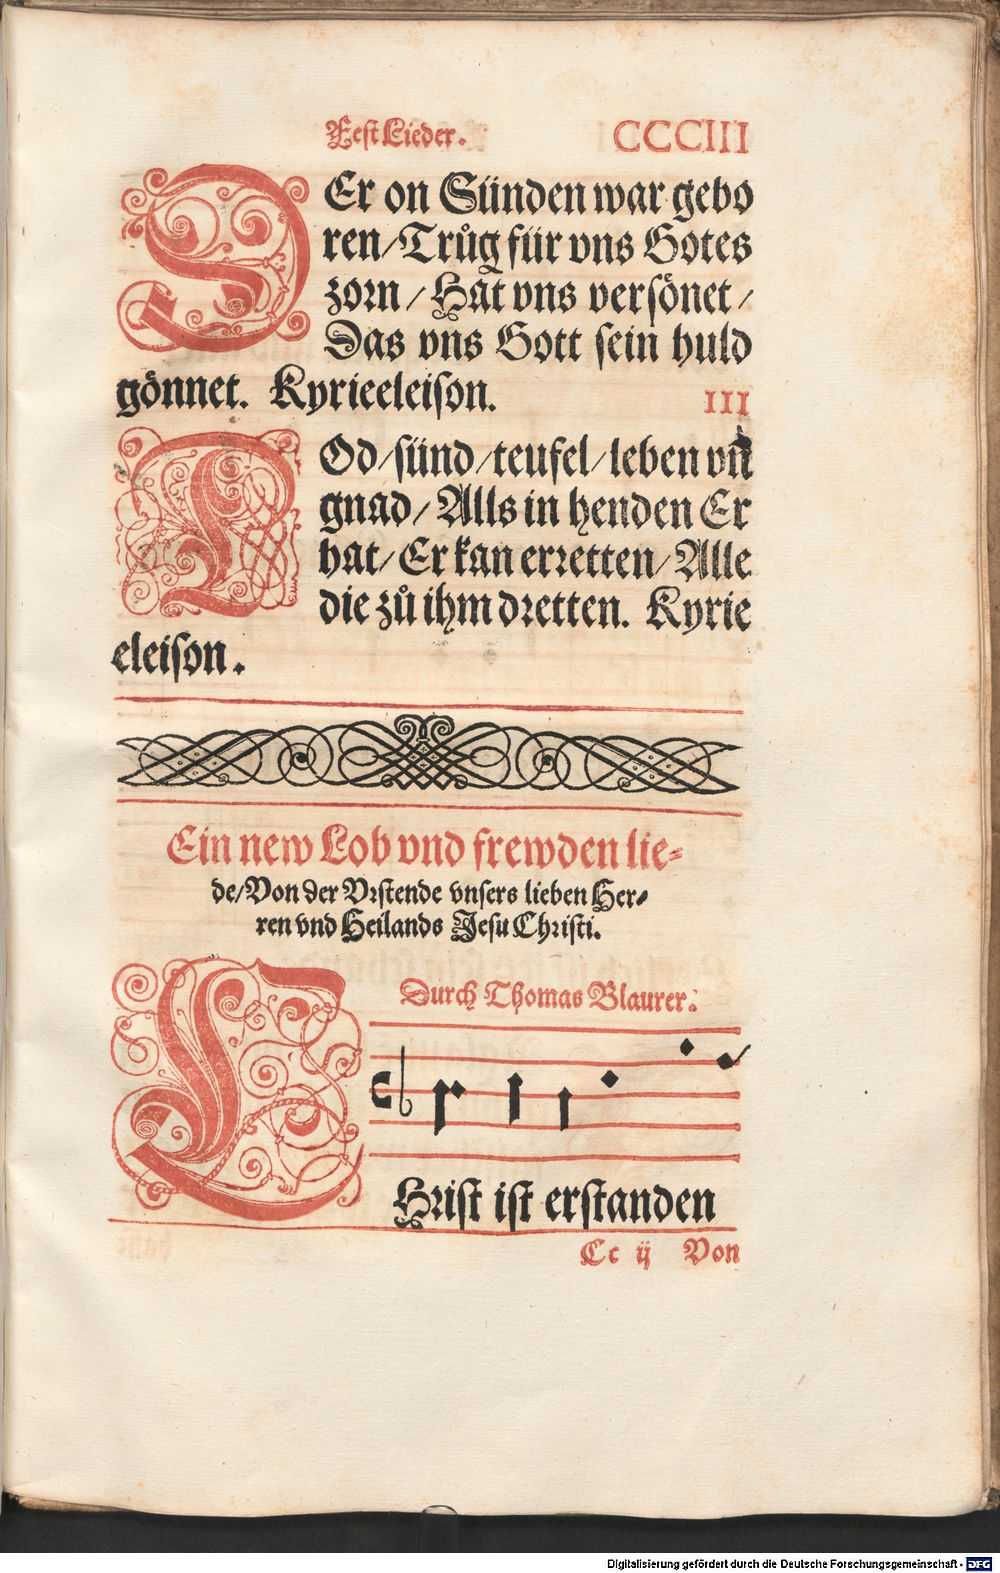 Fest Lieder. CCCIII
DEr on Sünden war gebo
ren/Trůg für vns Gotes
zorn/Hat vns versönet/
Das vns Gott sein huld
gönnet. Kyrieeleison. III
TOd/sünd/teufel/leben vn̄
gnad/Alls in henden Er
hat/Er kan erretten/Alle
die zů ihm dretten. Kyrie
eleison.
Ein new Lob vnd frewden lie-
de/Von der Vrstende vnsers lieben Her-
ren vnd Heilands Jesu Christi.
Durch Thomas Blaurer.
CHrist ist erstanden
Cc ij Von
Digitalisierung gefördert durch die Deutsche Forschungsgemeinschaft - DFG